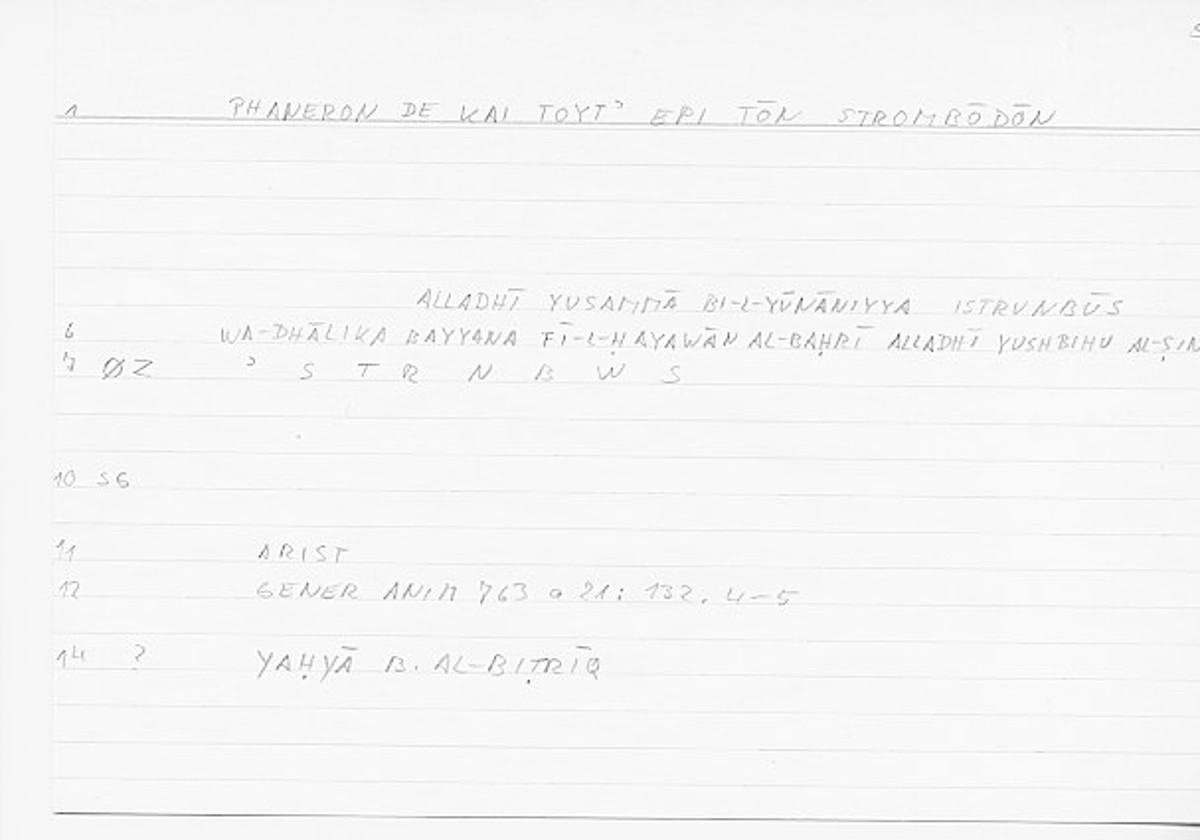 1 PHANERON DE KAI TOYT' EPI TŌN STROMBŌDŌN
ALLADHĪ YUSAMMĀ BI-L-YŪNĀNIYYA ISTRUNBŪS
6 WA-DHĀLIKA BAYYANA FĪ-L-ḤAYAWĀN AL-BAḤRĪ ALLADHĪ YUSHBIHU
7 ØZ ʾ S T R N B W S
10 SG
11 ARIST
12 GENER ANIM 763 a 21: 132. 4-5
14 ? YAḤYĀ B. AL-BIṬRĪQ